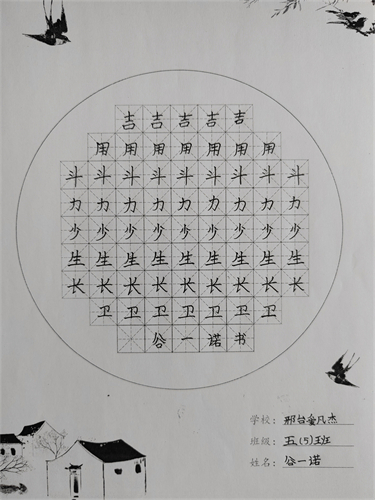 吉吉吉吉吉
用用用用用用用
斗斗斗斗斗斗斗斗斗
力力力力力力力力力
少少少少少少少少少
生生生生生生生生生
长长长长长长长长长
卫卫卫卫卫卫卫
谷一诺书
学校：邢台凡杰
班级：五(5)班
姓名：谷一诺